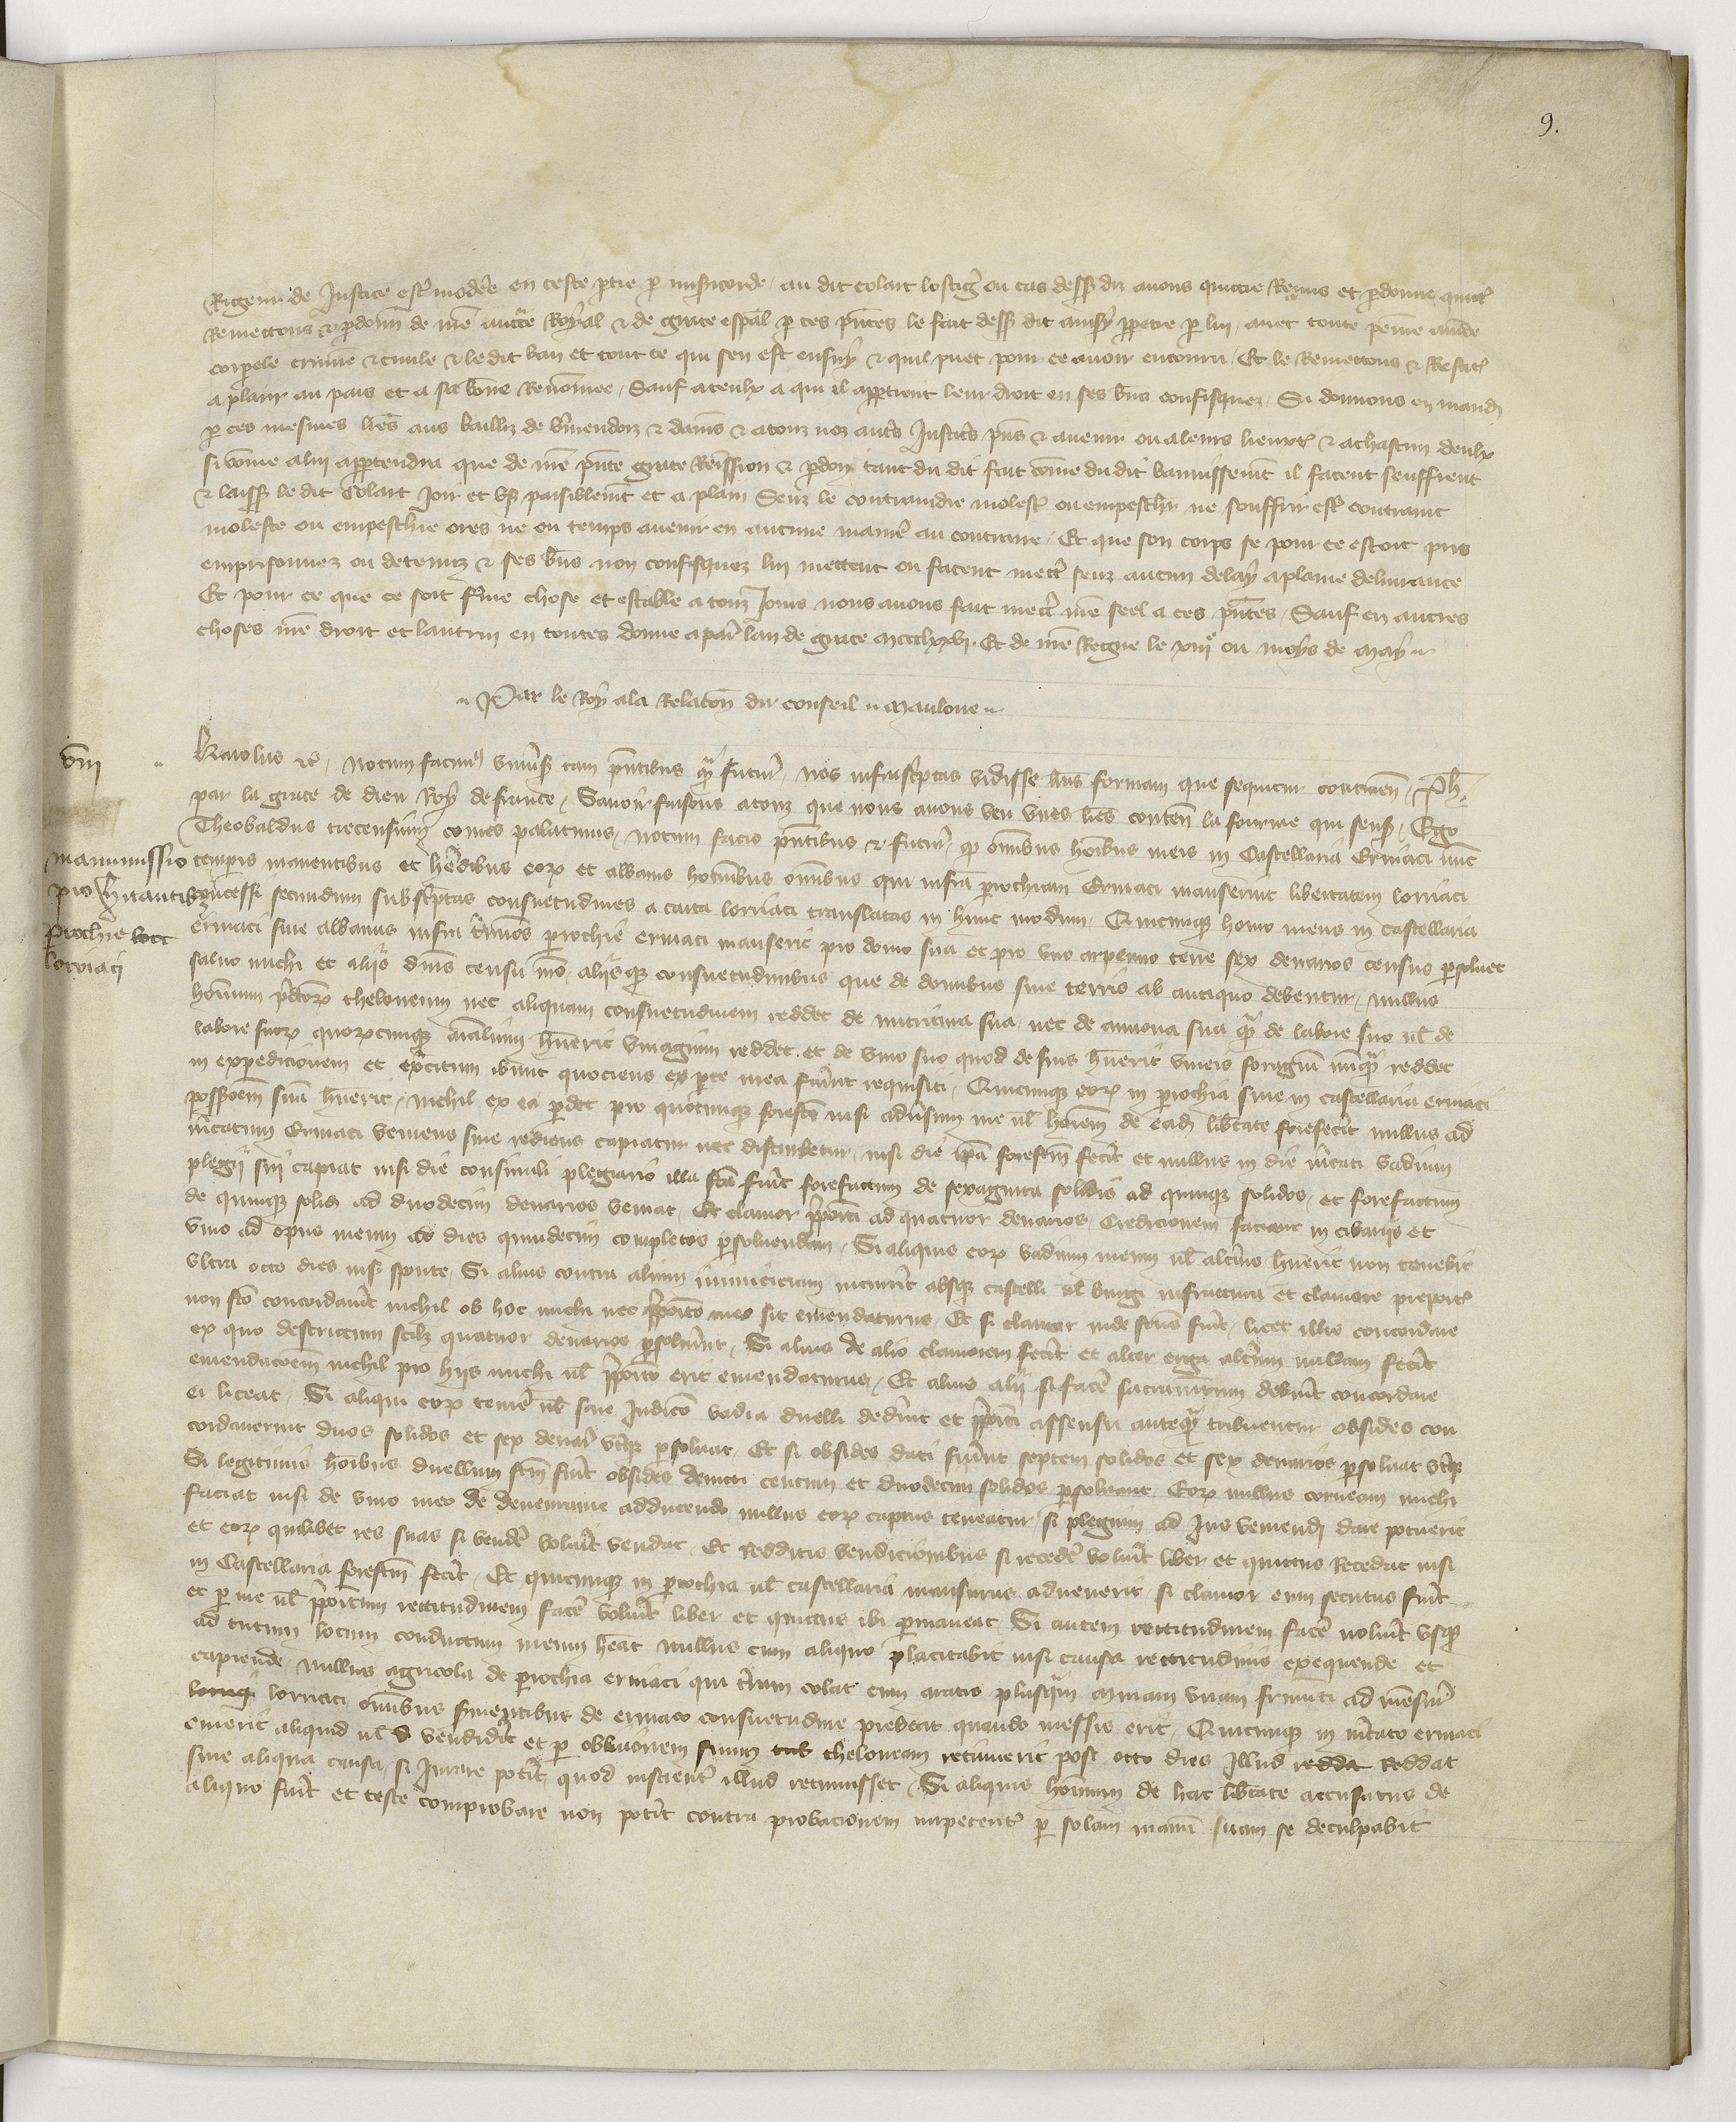 9.
Rigeur de Justice estre modere en ceste partie par misericorde au dit Colart lostigr ou cas dessus dit avons quittie Remis et pardonne quittons
Remettons & pardonnons de nre auctte Royal & de grace espal par ces pntes le fait dessus dit ainsy perpetre par lui avec toute peine amende
corporele crimine & civile & le dit ban et tout ce qui sen est ensuy & quil puet pour ce avoir encouru Et le Remettons & Restit
a plain au pais et a sa bone Renomee Sauf a ceulx a qui il appartient leur droit en ses bns confisquez Si donnons en mand
par ces mesmes lres aus bailliz de Vermendoiz & damiens & a touz noz autres Justiciers pns & avenir ou a leurs lieuxt & a chascun deulx
si come a lui appartendra que de nre pnte grace Remission & pardon tant du dit fait come du dit bannissemt il facent seuffrent
& laissent le dit Colart Joir et user paisiblemt et a plain Senz le contraindre molester ou empeschier ne souffrir estre contraint
moleste ou empeschie ores ne ou temps avenir en aucune maniere au contraire Et que son corps se pour ce estoit pris
emprisonnez ou detenuz & ses bns non confisquez lui mettent ou facent mectre senz aucun delay a plaine delivrance
Et pour ce que ce soit ferme chose et estable a touz Jours nous avons fait mectre nre seel a ces pntes Sauf en autres
choses nre droit et lautrui en toutes donne a paris lan de grace mccclxxvi Et de nre Regne le xiiie ou moys de May
Par le Roy a la Relacon du conseil Mauloue
viii
Karolus &c Notum facimus universis tam pntibus qm futuris nos infrascriptas vidisse lras formam que sequitur continen Ph
par la grace de dieu Roy de france Savoir faisons a touz que nous avons veu unes lres conten la fourme qui sensuit Ego
Theobaldus trecensium comes palatinus notum facio pntibus & futuris quod omnibus hoibus meis in Castellaria Ermaci nunc
manumissio
pro habitantibus
parochie loci
lorriaci
temporis manentibus et heredibus eorum et albanis hominibus omnibus qui infra parrochiam Ermaci manserint libertatem lorriaci
concesse secundum subscriptas consuetudines a carta lorriaci translatas in hunc modum Quicumque homo meus in castellaria
ermaci sive albanus infra tminos parrochie ermaci manserit pro domo sua et pro uno arpenno terre sex denarios census persoluet
salvo michi et aliis dnis censu mo aliisque consuetudinibus que de domibus sive terris ab antiquo debentur nullus
hominum pdtorum theloneum nec aliquam consuetudinem reddet de nutritura sua nec de annona sua quam de labore suo vel de
labore suorum quorumcumque aialium huerit vinagium reddet et de vino suo quod de suis huerit vineis foragium nunquam reddet
in expedicionem et excitum ibunt quociens ex parte mea fuerint requisiti Quicumque eorum in parrochia sive in castellaria ermaci
possessioem suam huerit nichil ex ea perdet pro quocumque forefco nisi adversum me vel hominem de eadem libertate forefecerit nullus ad
mercatum Ermaci veniens sive rediens capiatur nec disturbetur nisi die ipsa forefcm fecerit et nullus in die mercati vadium
plegii sui capiat nisi die consimili plegiatio illa fca fuerit forefactum de sexaginta solidis ad quinque solidos et forefactum
de quinque solidis ad duodecim denarios veniat Et clamor ppositi ad quatuor denarios Credicionem faciant in cibariis et
vino ad opus meum ad dies quindecim completos persoluendam Si aliquis eorum vadium meum vel alterius huerit non tenebit
ultra octo dies nisi sponte Si alius contra alium inimiciciam incurrerit absque castelli vel burgi infractura et clamore preposit
non fco concordaverit nichil ob hoc michi nec pposito meo sit emendaturus Et si clamor inde fcus fuerit licet illis concordare
ex quo destrictum scilicet quatuor denarios persolverint Si alius de alio clamorem fecerit et alter erga alterum nullam fecerit
emendacoem nichil pro hiis michi vel pposito erit emendaturus Et alius alii si facere sacramentum debuerit concordare
ei liceat Si aliqui eorum temere vel sine Judico vadia duelli dederint et ppositi assensu antequam tribuentur obsides con
cordaverint duos solidos et sex denar uterque persoluat Et si obsides dati fuerint septem solidos et sex denarios persoluat uterque
Si legitimis hoibus duellum fcm fuerit obsides devicti centum et duodecim solidos persoluant Eorum nullus corveam michi
faciat nisi de vino meo de Venemaure adducendo nullus eorum captus teneatur si plegium ad Jus veniendi dare potuerit
et eorum quilibet res suas si vendere voluerit vendat Et Redditis vendicionibus si recedere voluerit liber et quittus Recedat nisi
in Castellaria forefcm fecerit Et quicumque in parrochia vel castellaria mansurus advenerit si clamor eum secutus fuerit
et per me vel ppositum rectitudinem facere voluerit liber et quittus ibi permaneat Si autem rectitudinem facere noluerit usque
ad tutum locum conductum meum heat nullus cum aliquo placitabit nisi causa rectitudinis exequende et
capiende nullus agricola de parrochia ermaci qui terram colat cum aratro plusquam minam unam frumenti ad mensuram
lorriaci omnibus servientibus de ermaco consuetudine prebebit quando messis erit Quicumque in mercato ermaci
emerit aliquid vel vendiderit et per oblivionem suum theloneum retinuerit post octo dies Illud Reddat
sine aliqua causa si Jurare poterit quod inscienter illud retinuisset Si aliquis hominum de hac libertate accusatus de
aliquo fuerit et teste comprobare non poterit contra probacionem impetentis per solam manum suam se deculpabit